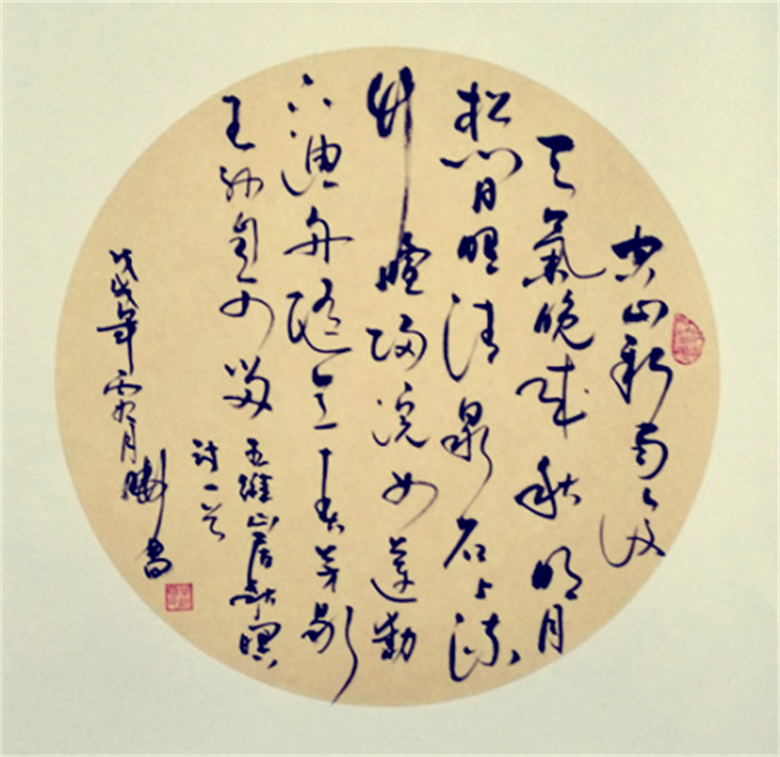 空山新雨後
天氣晚来秋明月
松間照清泉石上流
竹喧歸浣女蓮動
下漁舟隨意春芳歇
王孫自可留
王維山居秋暝
詩一首
戊戌年月書